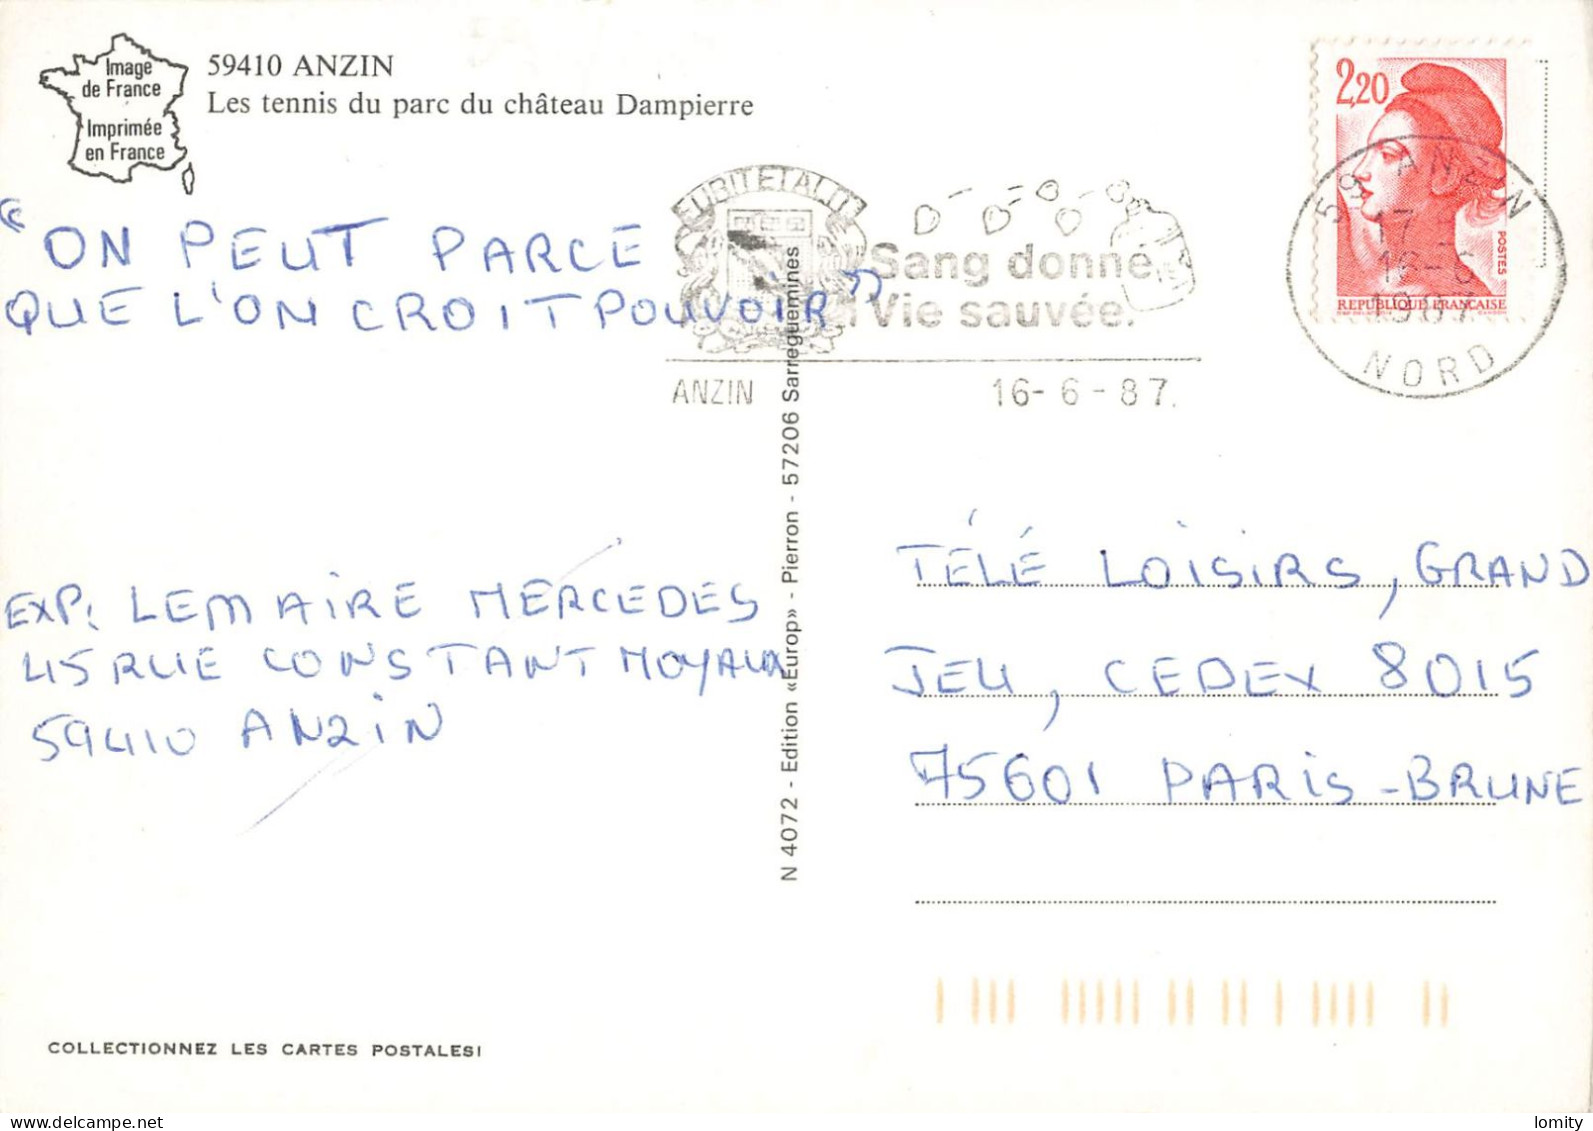 Image
de France
Imprimée
en France
59410 ANZIN
Les tennis du parc du château Dampierre
"ON PEUT PARCE
QUE L'ON CROIT POUVOIR"
Sang donné
Vie sauvée.
ANZIN 16-6-87.
2,20
POSTES
REPUBLIQUE FRANCAISE
59 ANZIN
17
16-6
1987
NORD
EXP: LEMAIRE MERCEDES
45 RUE CONSTANT MOYAUX
59410 ANZIN
N 4072 - Edition «Europ» - Pierron - 57206 Sarreguemines
TÉLÉ LOISIRS, GRAND
JEU, CEDEX 8015
75601 PARIS-BRUNE
COLLECTIONNEZ LES CARTES POSTALES!
lomity